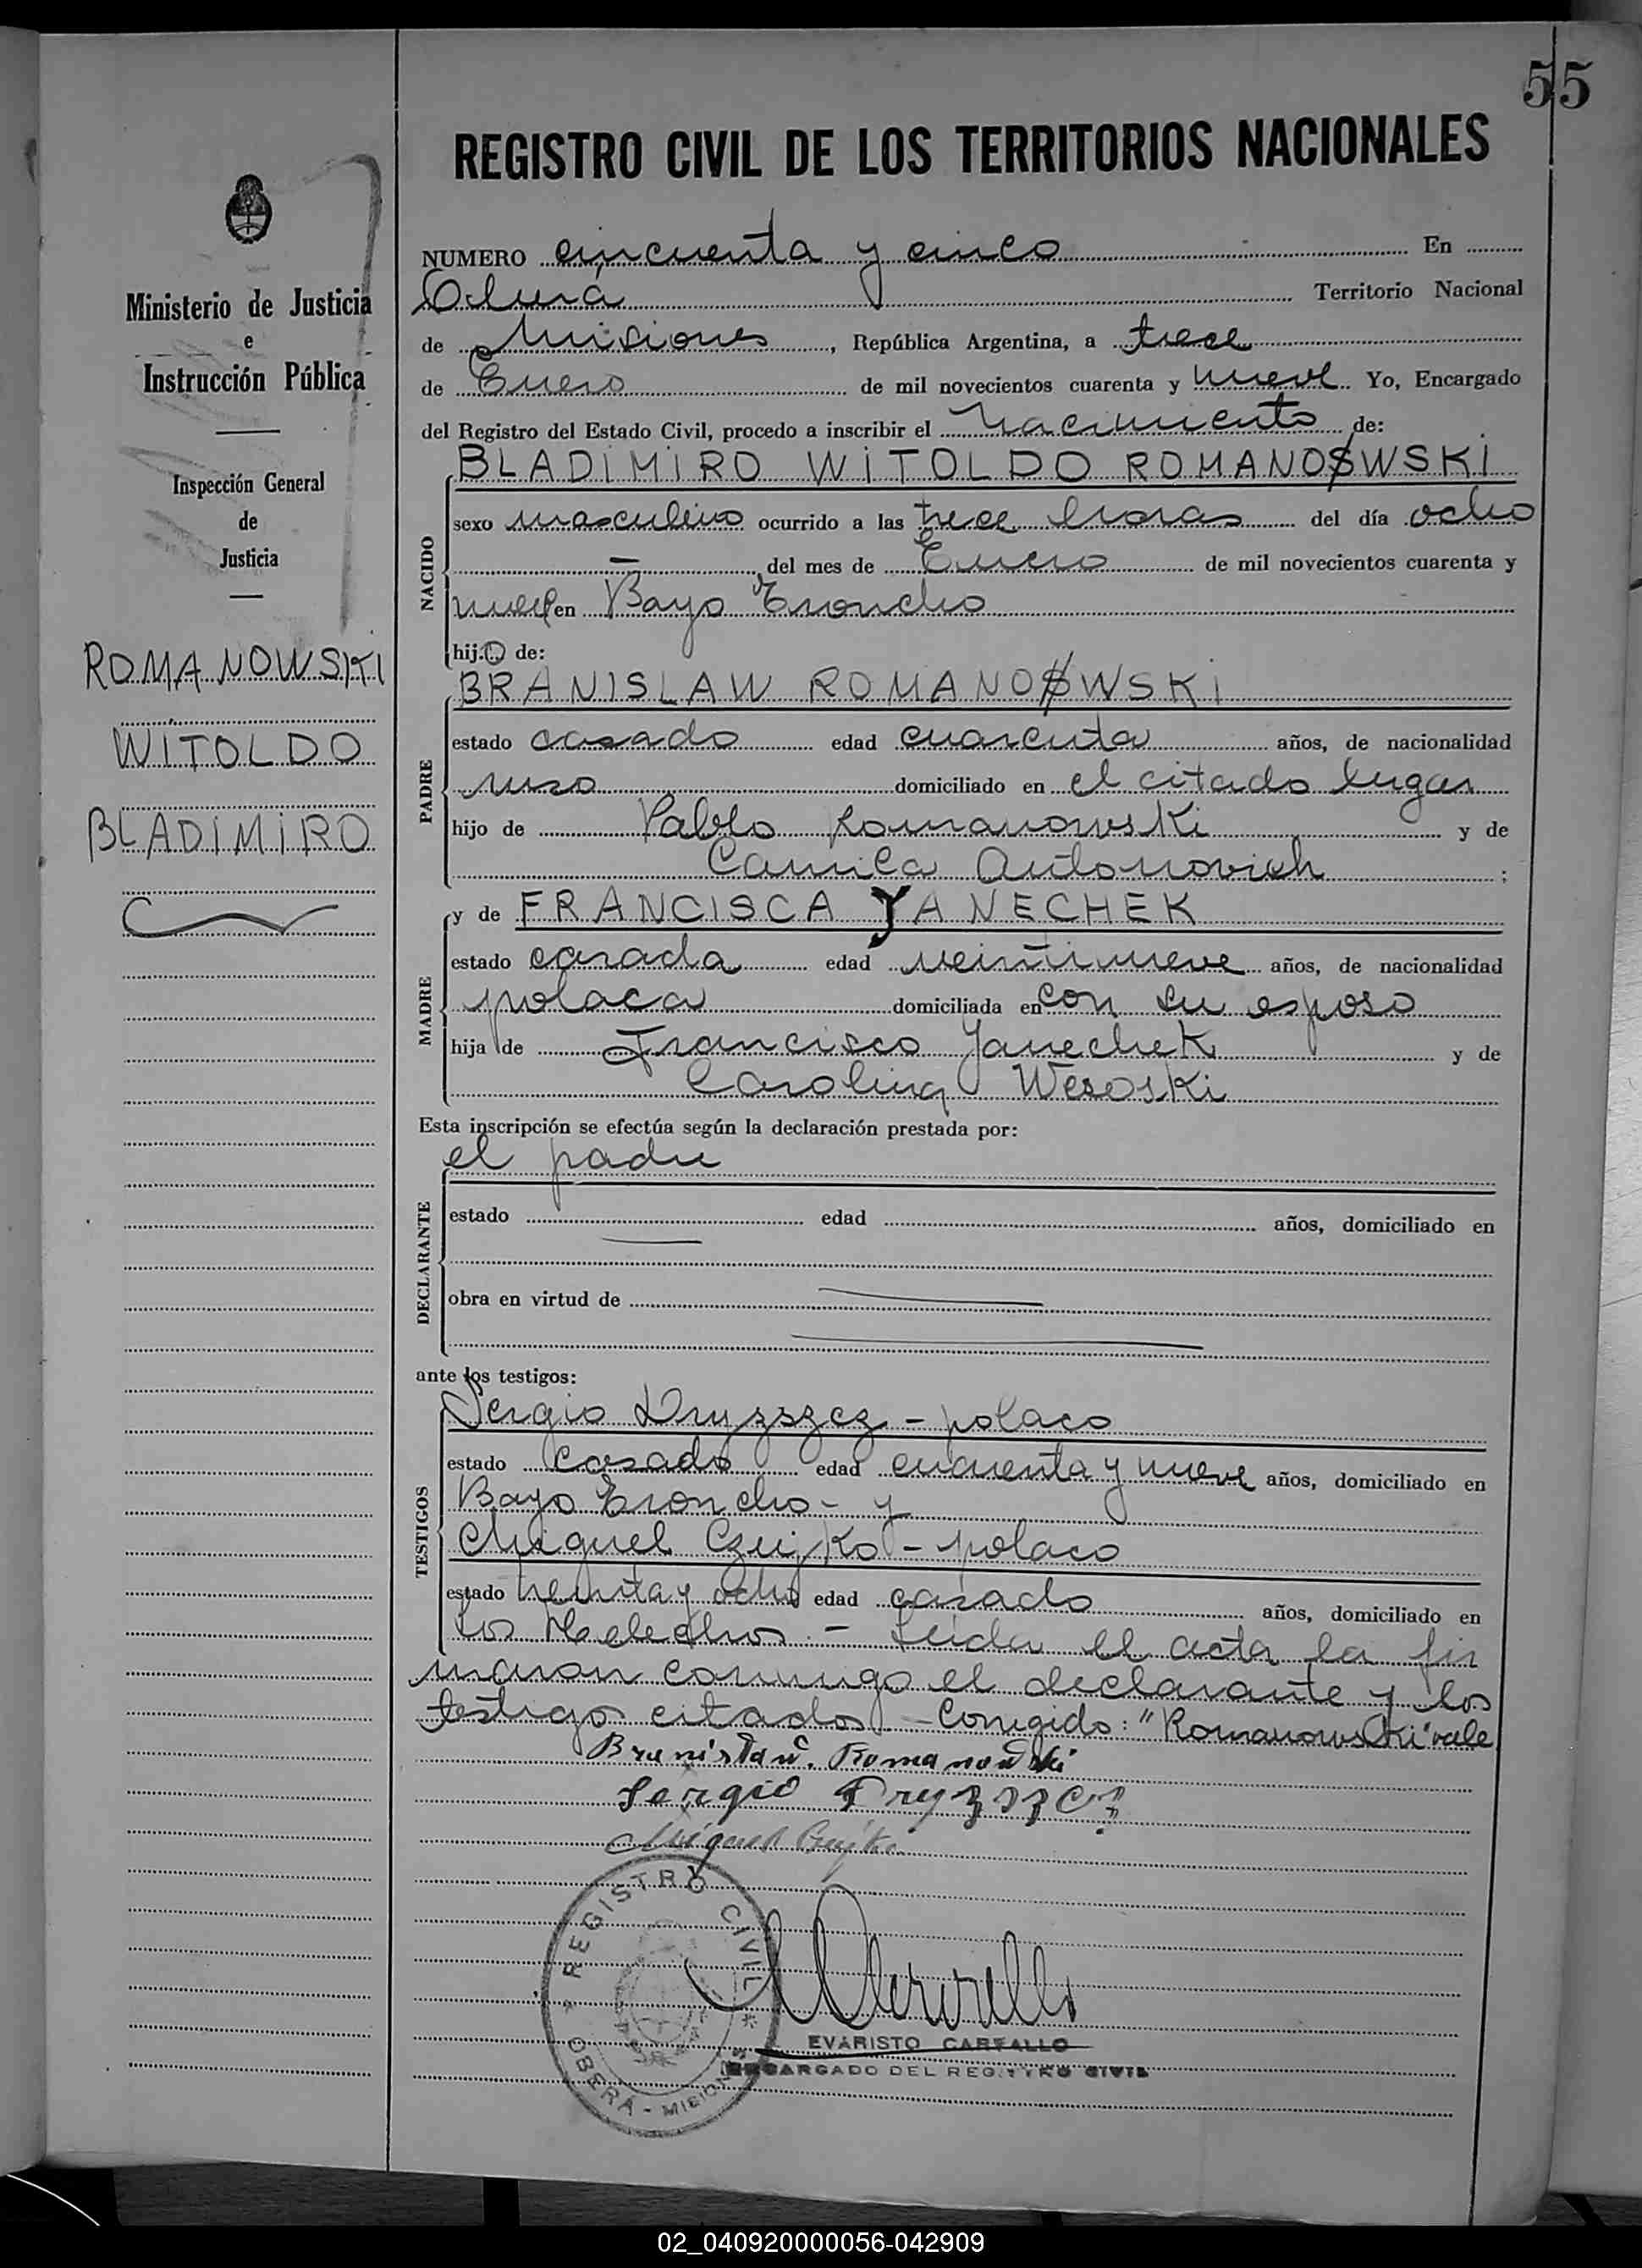 55
REGISTRO CIVIL DE LOS TERRITORIOS NACIONALES
Ministerio de Justicia
e
Instrucción Pública
Inspección General
de
Justicia
ROMANOWSKI
WITOLDO
BLADIMIRO
NUMERO cincuenta y cinco En
Oberá Territorio Nacional
de Misiones, República Argentina, a trece
de Enero de mil novecientos cuarenta y nueve Yo, Encargado
del Registro del Estado Civil, procedo a inscribir el nacimiento de:
BLADIMIRO WITOLDO ROMANOWSKI
NACIDO
sexo masculino ocurrido a las trece horas del día ocho
— del mes de Enero de mil novecientos cuarenta y
nueve en Bayo Troncho
hijo de:
BRANISLAW ROMANOWSKI
PADRE
estado casado edad cuarenta años, de nacionalidad
ruso domiciliado en el citado lugar
hijo de Pablo Romanowski y de
Camila Antonovich ;
y de FRANCISCA YANECHEK
MADRE
estado casada edad veintinueve años, de nacionalidad
polaca domiciliada en con su esposo
hija de Francisco Janechek y de
Carolina Wesoski
Esta inscripción se efectúa según la declaración prestada por:
el padre
DECLARANTE
estado edad años, domiciliado en
obra en virtud de
ante los testigos:
Sergio - polaco
TESTIGOS
estado casado edad cuarenta y nueve años, domiciliado en
Bayo Troncho - y
Miguel Czujko - polaco
estado treinta y ocho edad casado años, domiciliado en
Los Helechos. - Leida el acta la fir
maron conmigo el declarante y los
testigos citados - Corregido: "Romanowski" vale
Bronisław. Romanowski
Sergio
Miguel Czujko
REGISTRO CIVIL * OBERÁ - MISIONES *
EVARISTO CARFALLO
ENCARGADO DEL REGISTRO CIVIL
02_040920000056-042909